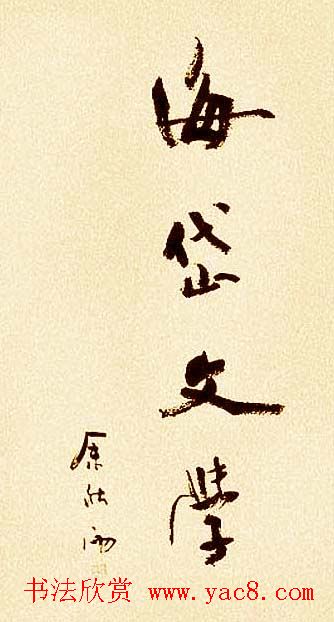 海岱文學
余秋雨
书法欣赏 www.yac8.com